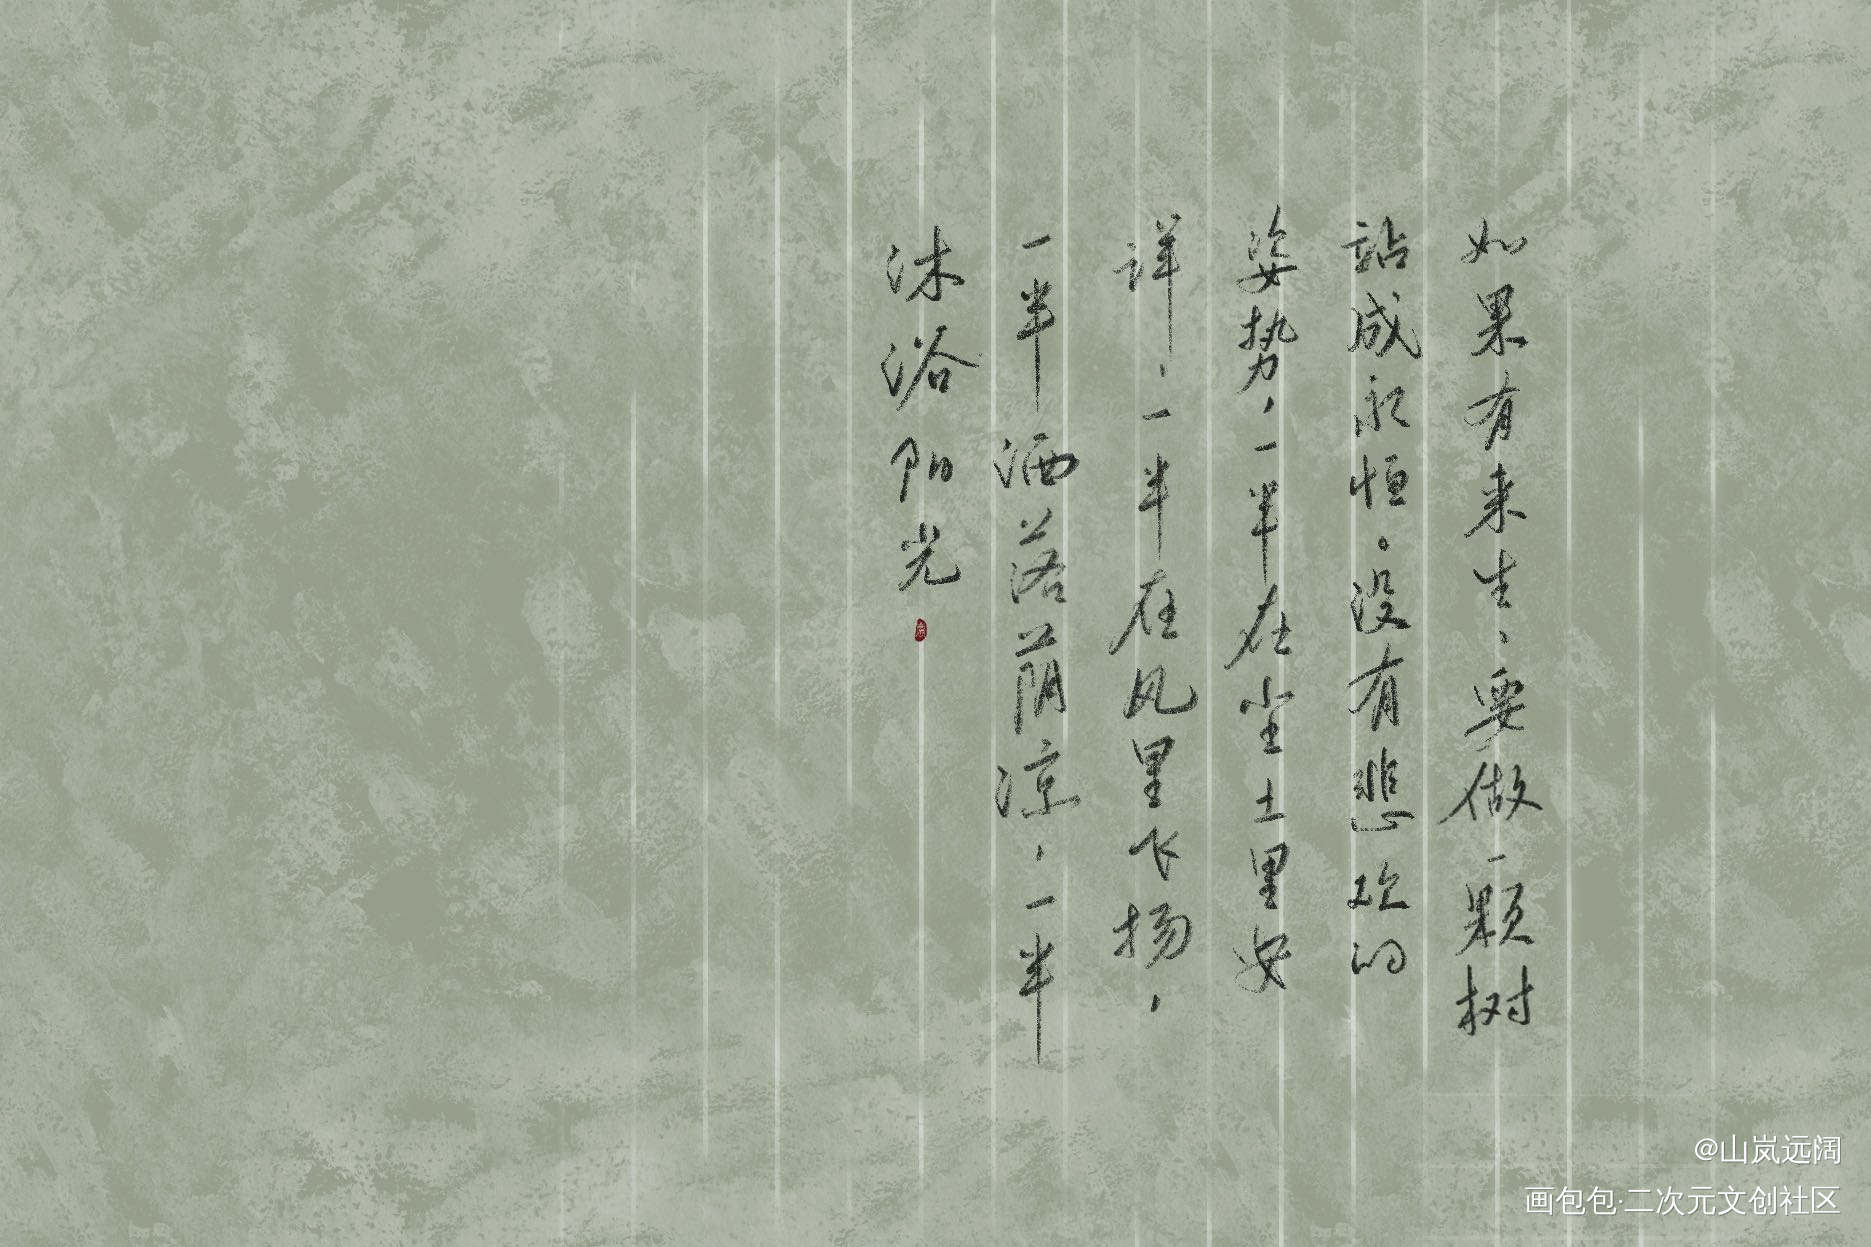 如果有来生，要做一颗树
站成永恒。没有悲欢的
姿势，一半在尘土里安
详，一半在风里飞扬，
一半洒落荫凉，一半
沐浴阳光
@山岚远阔
画包包·二次元文创社区